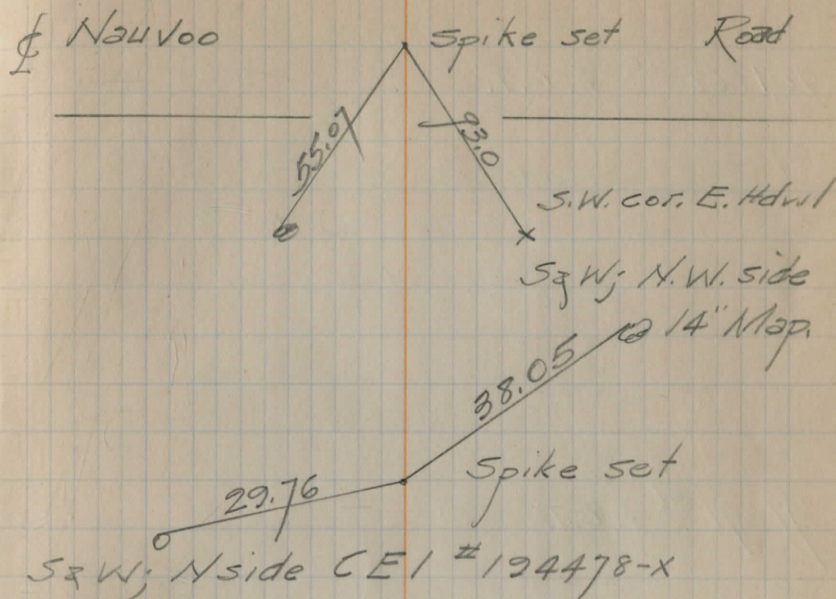 ℄ Nauvoo Spike set Road
55.07 93.0
S.W. cor. E. Hdwl
S&W; N.W. side
14" Map.
38.05
Spike set
29.76
S&W; N side CEI #194478-X